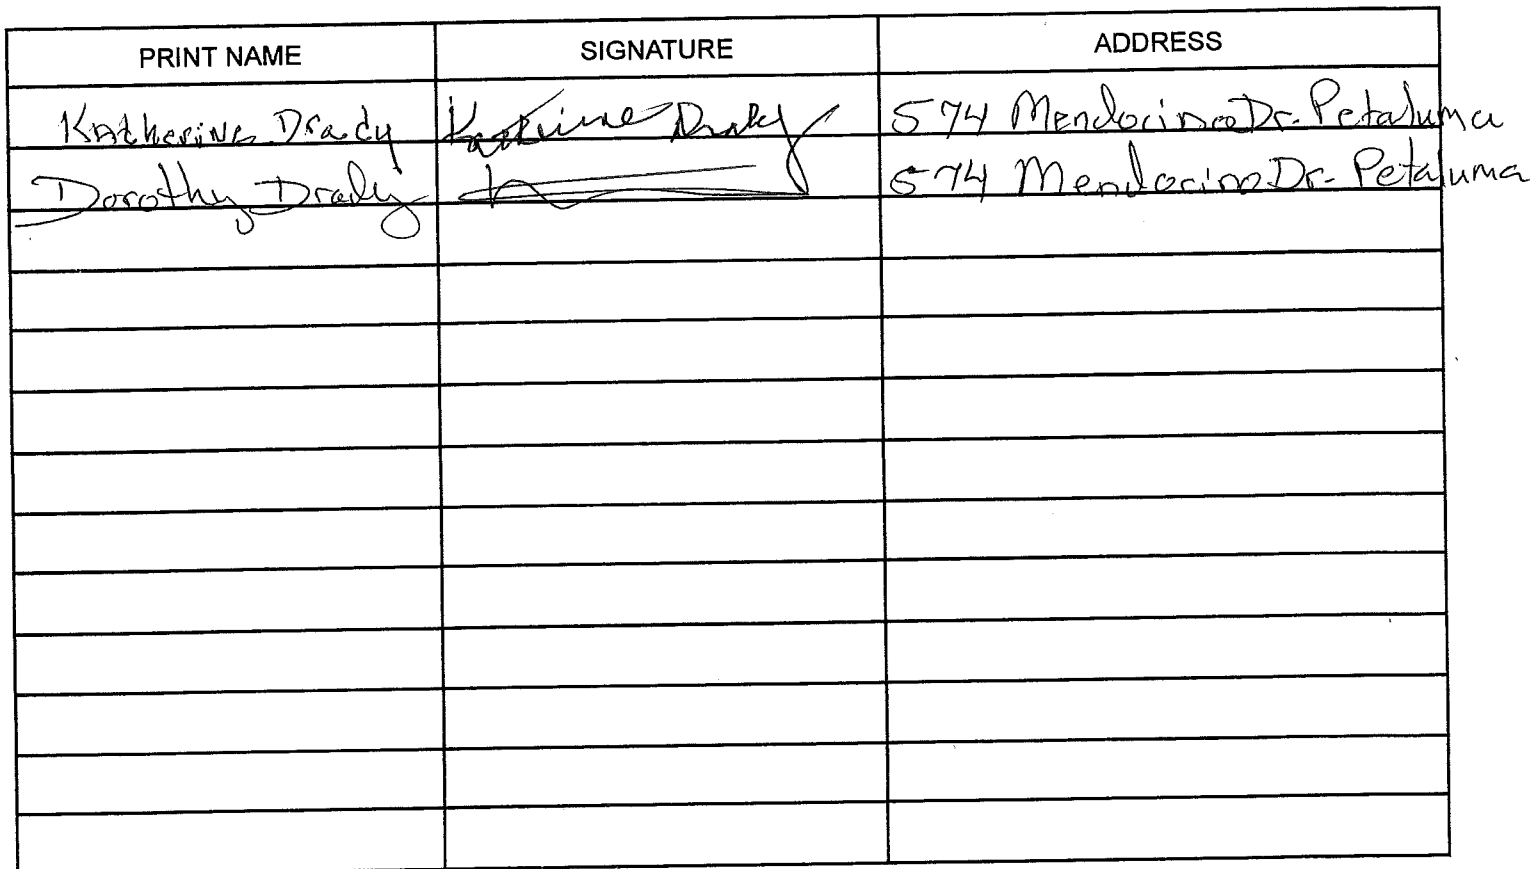 PRINT NAME SIGNATURE ADDRESS
Katherine Drady Katherine Drady 574 Mendocino Dr. Petaluma
Dorothy Drady 574 Mendocino Dr. Petaluma